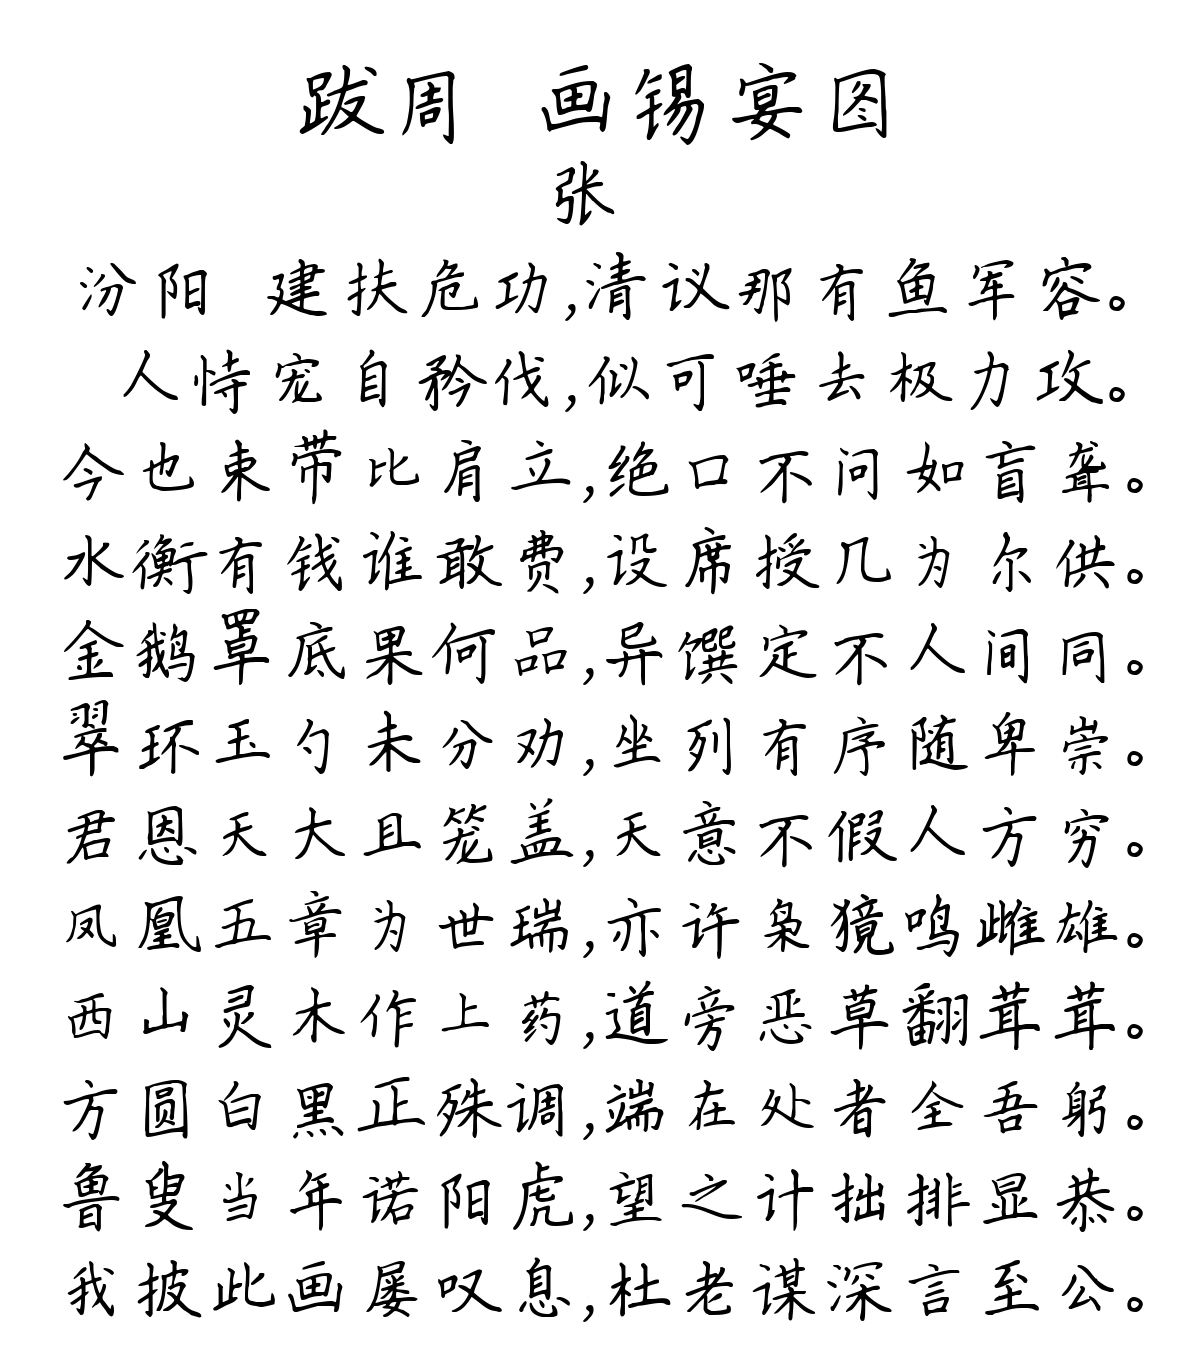 跋周 画锡宴图
张
汾阳 建扶危功,清议那有鱼军容。
人恃宠自矜伐,似可唾去极力攻。
今也束带比肩立,绝口不问如盲聋。
水衡有钱谁敢费,设席授几为尔供。
金鹅罩底果何品,异馔定不人间同。
翠环玉勺未分劝,坐列有序随卑崇。
君恩天大且笼盖,天意不假人方穷。
凤凰五章为世瑞,亦许枭獍鸣雌雄。
西山灵木作上药,道旁恶草翻茸茸。
方圆白黑正殊调,端在处者全吾躬。
鲁叟当年诺阳虎,望之计拙排显恭。
我披此画屡叹息,杜老谋深言至公。